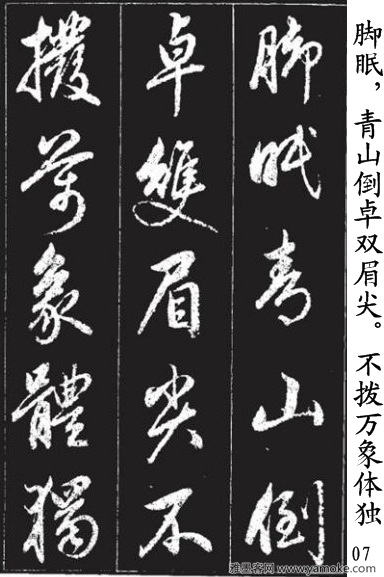 脚眠青山倒
卓雙眉尖不
撥萬象體獨
脚眠，青山倒卓双眉尖。不拨万象体独
07
雅墨客网 www.yamoke.com